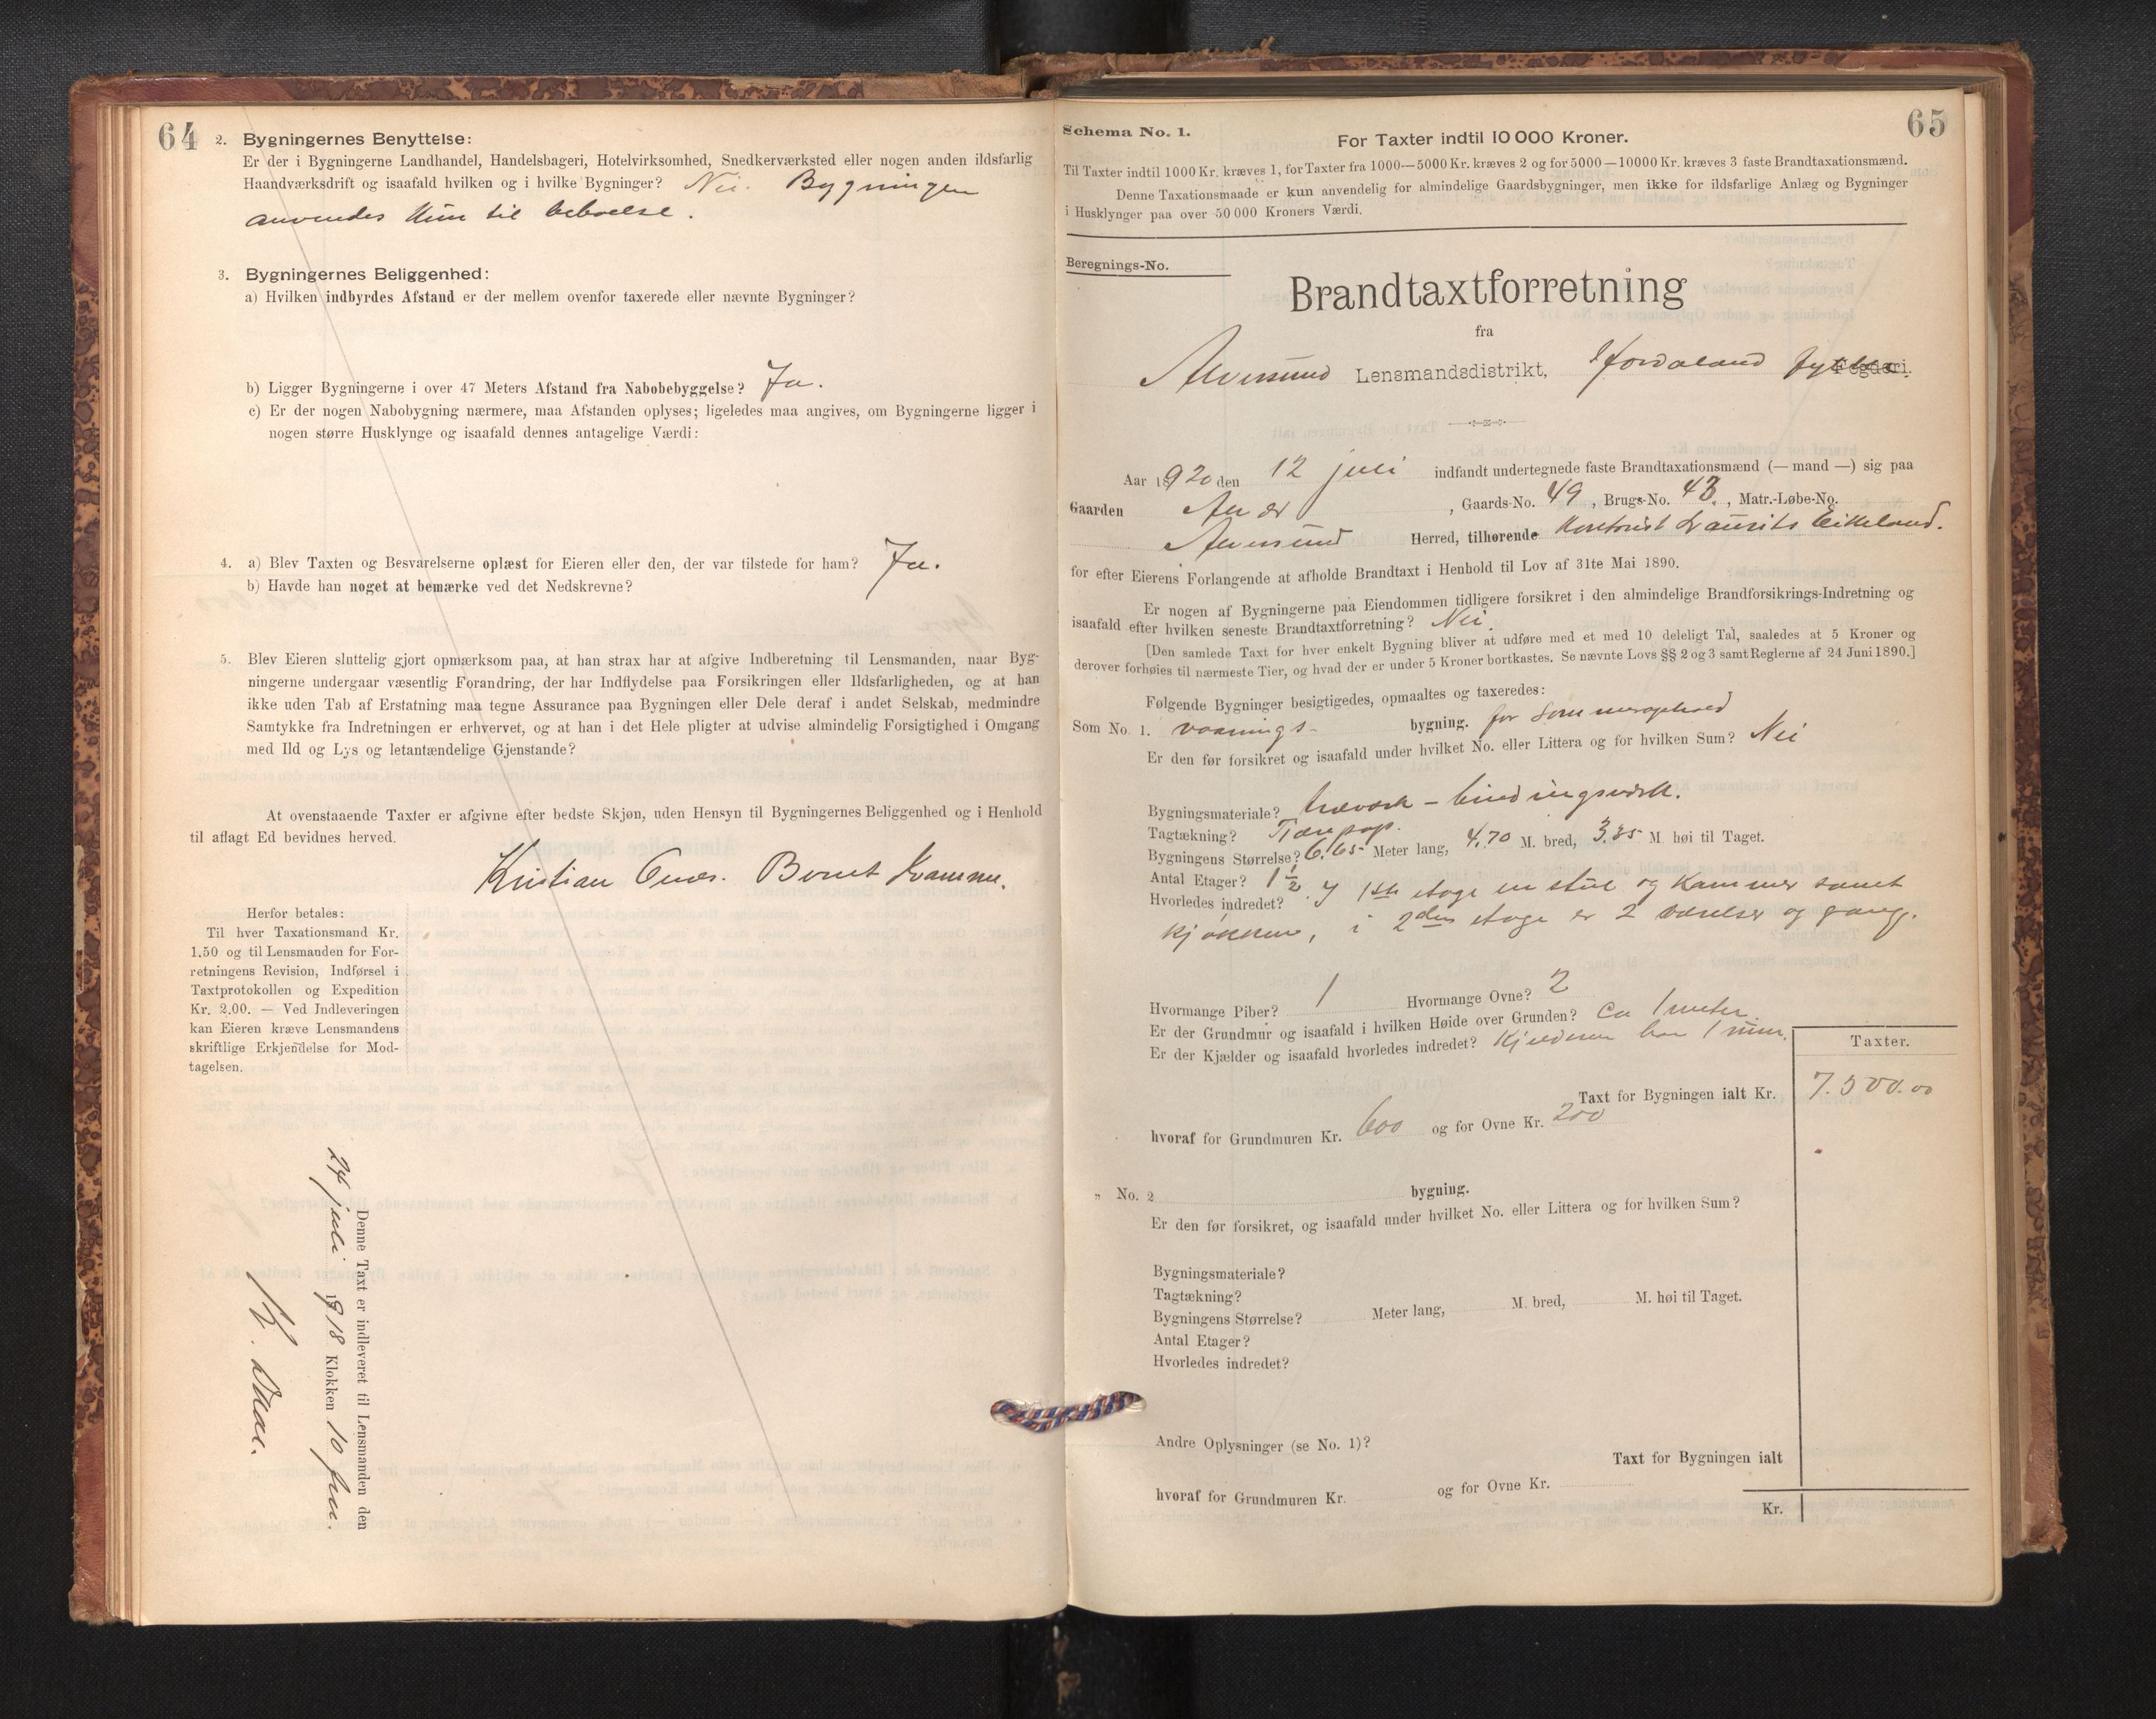 64
2. Bygningernes Benyttelse:
Er der i Bygningerne Landhandel, Handelsbageri, Hotelvirksomhed, Snedkerværksted eller nogen anden ildsfarlig
Haandværksdrift og isaafald hvilken og i hvilke Bygninger? Nei. Bygningen
anvendes kun til beboelse.
3. Bygningernes Beliggenhed:
a) Hvilken indbyrdes Afstand er der mellem ovenfor taxerede eller nævnte Bygninger?
b) Ligger Bygningerne i over 47 Meters Afstand fra Nabobebyggelse? Ja.
c) Er der nogen Nabobygning nærmere, maa Afstanden oplyses; ligeledes maa angives, om Bygningerne ligger i
nogen større Husklynge og isaafald dennes antagelige Værdi:
4. a) Blev Taxten og Besvarelserne oplæst for Eieren eller den, der var tilstede for ham? Ja.
b) Havde han noget at bemærke ved det Nedskrevne?
5. Blev Eieren sluttelig gjort opmærksom paa, at han strax har at afgive Indberetning til Lensmanden, naar Byg-
ningerne undergaar væsentlig Forandring, der har Indflydelse paa Forsikringen eller Ildsfarligheden, og at han
ikke uden Tab af Erstatning maa tegne Assurance paa Bygningen eller Dele deraf i andet Selskab, medmindre
Samtykke fra Indretningen er erhvervet, og at han i det Hele pligter at udvise almindelig Forsigtighed i Omgang
med Ild og Lys og letantændelige Gjenstande?
At ovenstaaende Taxter er afgivne efter bedste Skjøn, uden Hensyn til Bygningernes Beliggenhed og i Henhold
til aflagt Ed bevidnes herved.
Kristian Bernt
Herfor betales:
Til hver Taxationsmand Kr.
1.50 og til Lensmanden for For-
retningens Revision, Indførsel i
Taxtprotokollen og Expedition
Kr. 2.00. — Ved Indleveringen
kan Eieren kræve Lensmandens
skriftlige Erkjendelse for Mod-
tagelsen.
Denne Taxt er indleveret til Lensmanden den
24 juli 1918 Klokken 10 fm.
65
Schema No. 1.
For Taxter indtil 10 000 Kroner.
Til Taxter indtil 1000 Kr. kræves 1, for Taxter fra 1000—5000 Kr. kræves 2 og for 5000—10000 Kr. kræves 3 faste Brandtaxationsmænd.
Denne Taxationsmaade er kun anvendelig for almindelige Gaardsbygninger, men ikke for ildsfarlige Anlæg og Bygninger
i Husklynger paa over 50 000 Kroners Værdi.
Beregnings-No.
Brandtaxtforretning
fra
Alversund Lensmandsdistrikt, Hordaland fylke Fogderi.
Aar 1920 den 12 juli indfandt undertegnede faste Brandtaxationsmænd (— mand —) sig paa
Gaarden , Gaards-No. 49, Brugs-No. 43., Matr.-Løbe-No.
Alversund Herred, tilhørende Kontorist Laurits Eikeland.
for efter Eierens Forlangende at afholde Brandtaxt i Henhold til Lov af 31te Mai 1890.
Er nogen af Bygningerne paa Eiendommen tidligere forsikret i den almindelige Brandforsikrings-Indretning og
isaafald efter hvilken seneste Brandtaxtforretning? Nei.
[Den samlede Taxt for hver enkelt Bygning bliver at udføre med et med 10 deleligt Tal, saaledes at 5 Kroner og
derover forhøies til nærmeste Tier, og hvad der er under 5 Kroner bortkastes. Se nævnte Lovs §§ 2 og 3 samt Reglerne af 24 Juni 1890.]
Følgende Bygninger besigtigedes, opmaaltes og taxeredes:
Som No. 1. vaanings- bygning. for Sommerophold
Er den før forsikret og isaafald under hvilket No. eller Littera og for hvilken Sum? Nei
Bygningsmateriale? træværk – bindingsværk.
Tagtækning? Tjærepap.
Bygningens Størrelse? 6.65 Meter lang, 4.70 M. bred, 3.35 M. høi til Taget.
Antal Etager? 1½
Hvorledes indredet? I 1ste etage en stue og Kammer samt
kjøkken, i 2den etage er 2 værelser og gang.
Hvormange Piber? 1 Hvormange Ovne? 2
Er der Grundmur og isaafald i hvilken Høide over Grunden? Ca 1 meter
Er der Kjælder og isaafald hvorledes indredet? Kjælderen har 1 rum.
Taxter.
Taxt for Bygningen ialt Kr. 7.500.00
hvoraf for Grundmuren Kr. 600 og for Ovne Kr. 200
„ No. 2 bygning.
Er den før forsikret, og isaafald under hvilket No. eller Littera og for hvilken Sum?
Bygningsmateriale?
Tagtækning?
Bygningens Størrelse? Meter lang, M. bred, M. høi til Taget.
Antal Etager?
Hvorledes indredet?
Andre Oplysninger (se No. 1)?
Taxt for Bygningen ialt
hvoraf for Grundmuren Kr. og for Ovne Kr.
Kr.